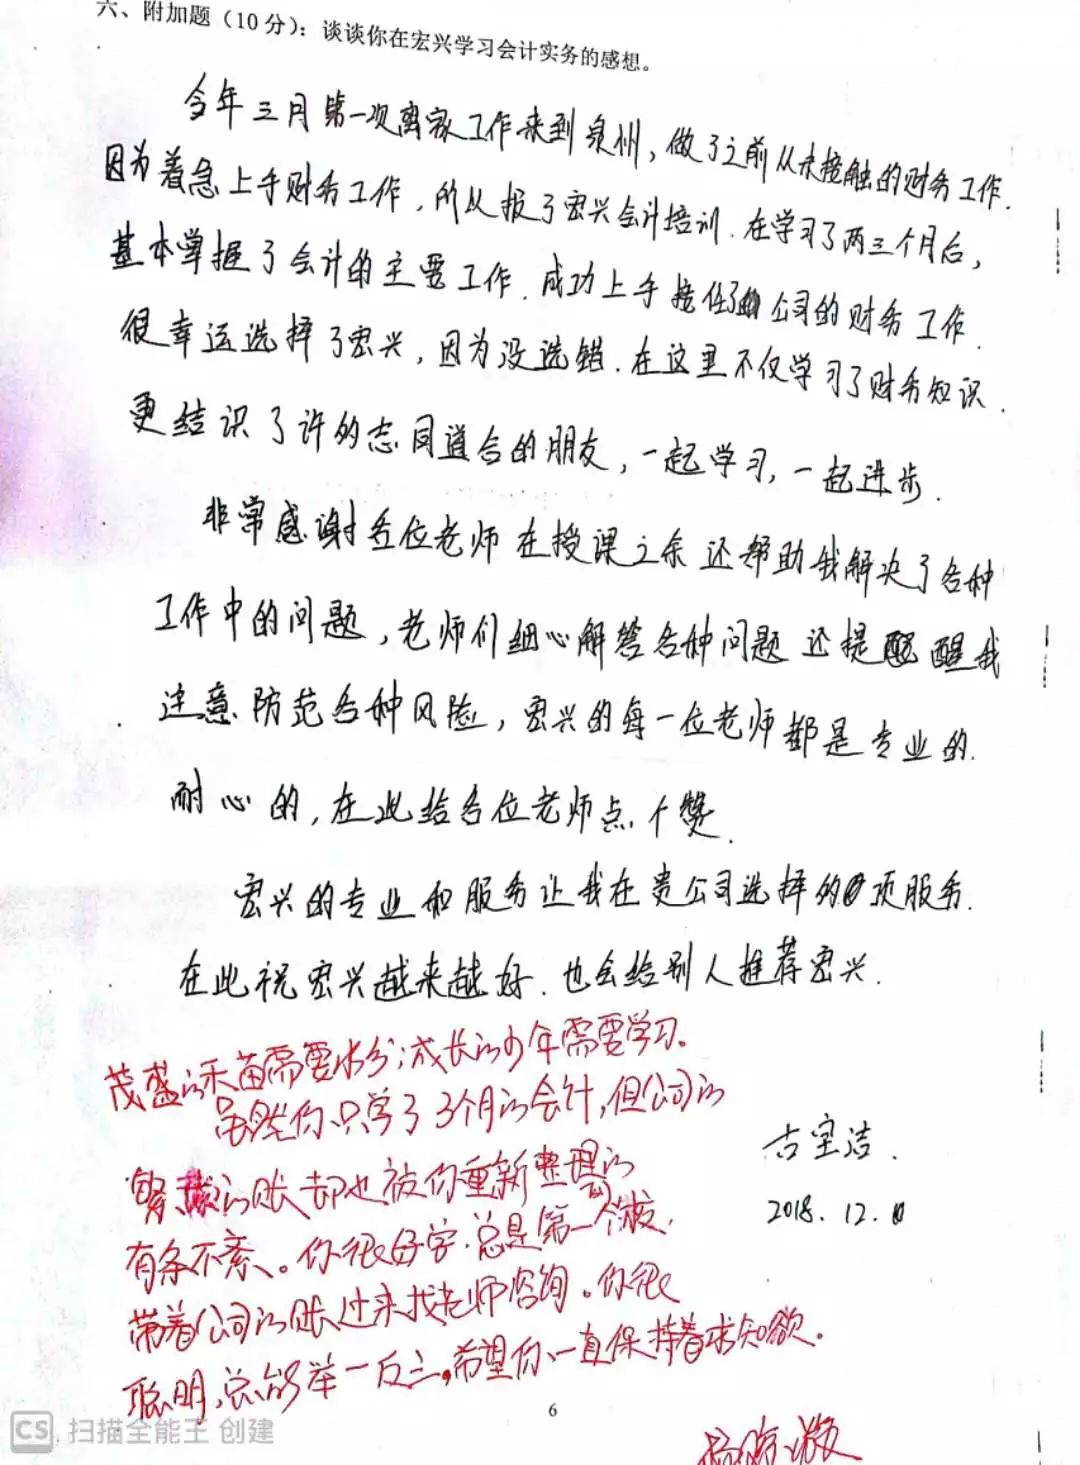 六、附加题（10分）：谈谈你在宏兴学习会计实务的感想。
今年三月第一次离家工作来到泉州，做了之前从未接触的财务工作.
因为着急上手财务工作，所以报了宏兴会计培训.在学习了两三个月后，
基本掌握了会计的主要工作.成功上手接任了公司的财务工作.
很幸运选择了宏兴，因为没选错.在这里不仅学习了财务知识.
更结识了许多志同道合的朋友，一起学习，一起进步.
非常感谢各位老师在授课之余还帮助我解决了各种
工作中的问题，老师们细心解答各种问题还提醒我
注意防范各种风险，宏兴的每一位老师都是专业的.
耐心的，在此给各位老师点个赞.
宏兴的专业和服务让我在贵公司选择的项服务.
在此祝宏兴越来越好.也会给别人推荐宏兴.
茂盛的禾苗需要水分;成长的少年需要学习。
虽然你只学了3个月的会计,但公司的
繁的账却也被你重新整理的
有条不紊。你很好学.总是第一个
带着公司的账过来找老师咨询。你很
聪明,总能举一反三,希望你一直保持着求知欲。
古宝洁.
2018.12.
6
CS 扫描全能王 创建